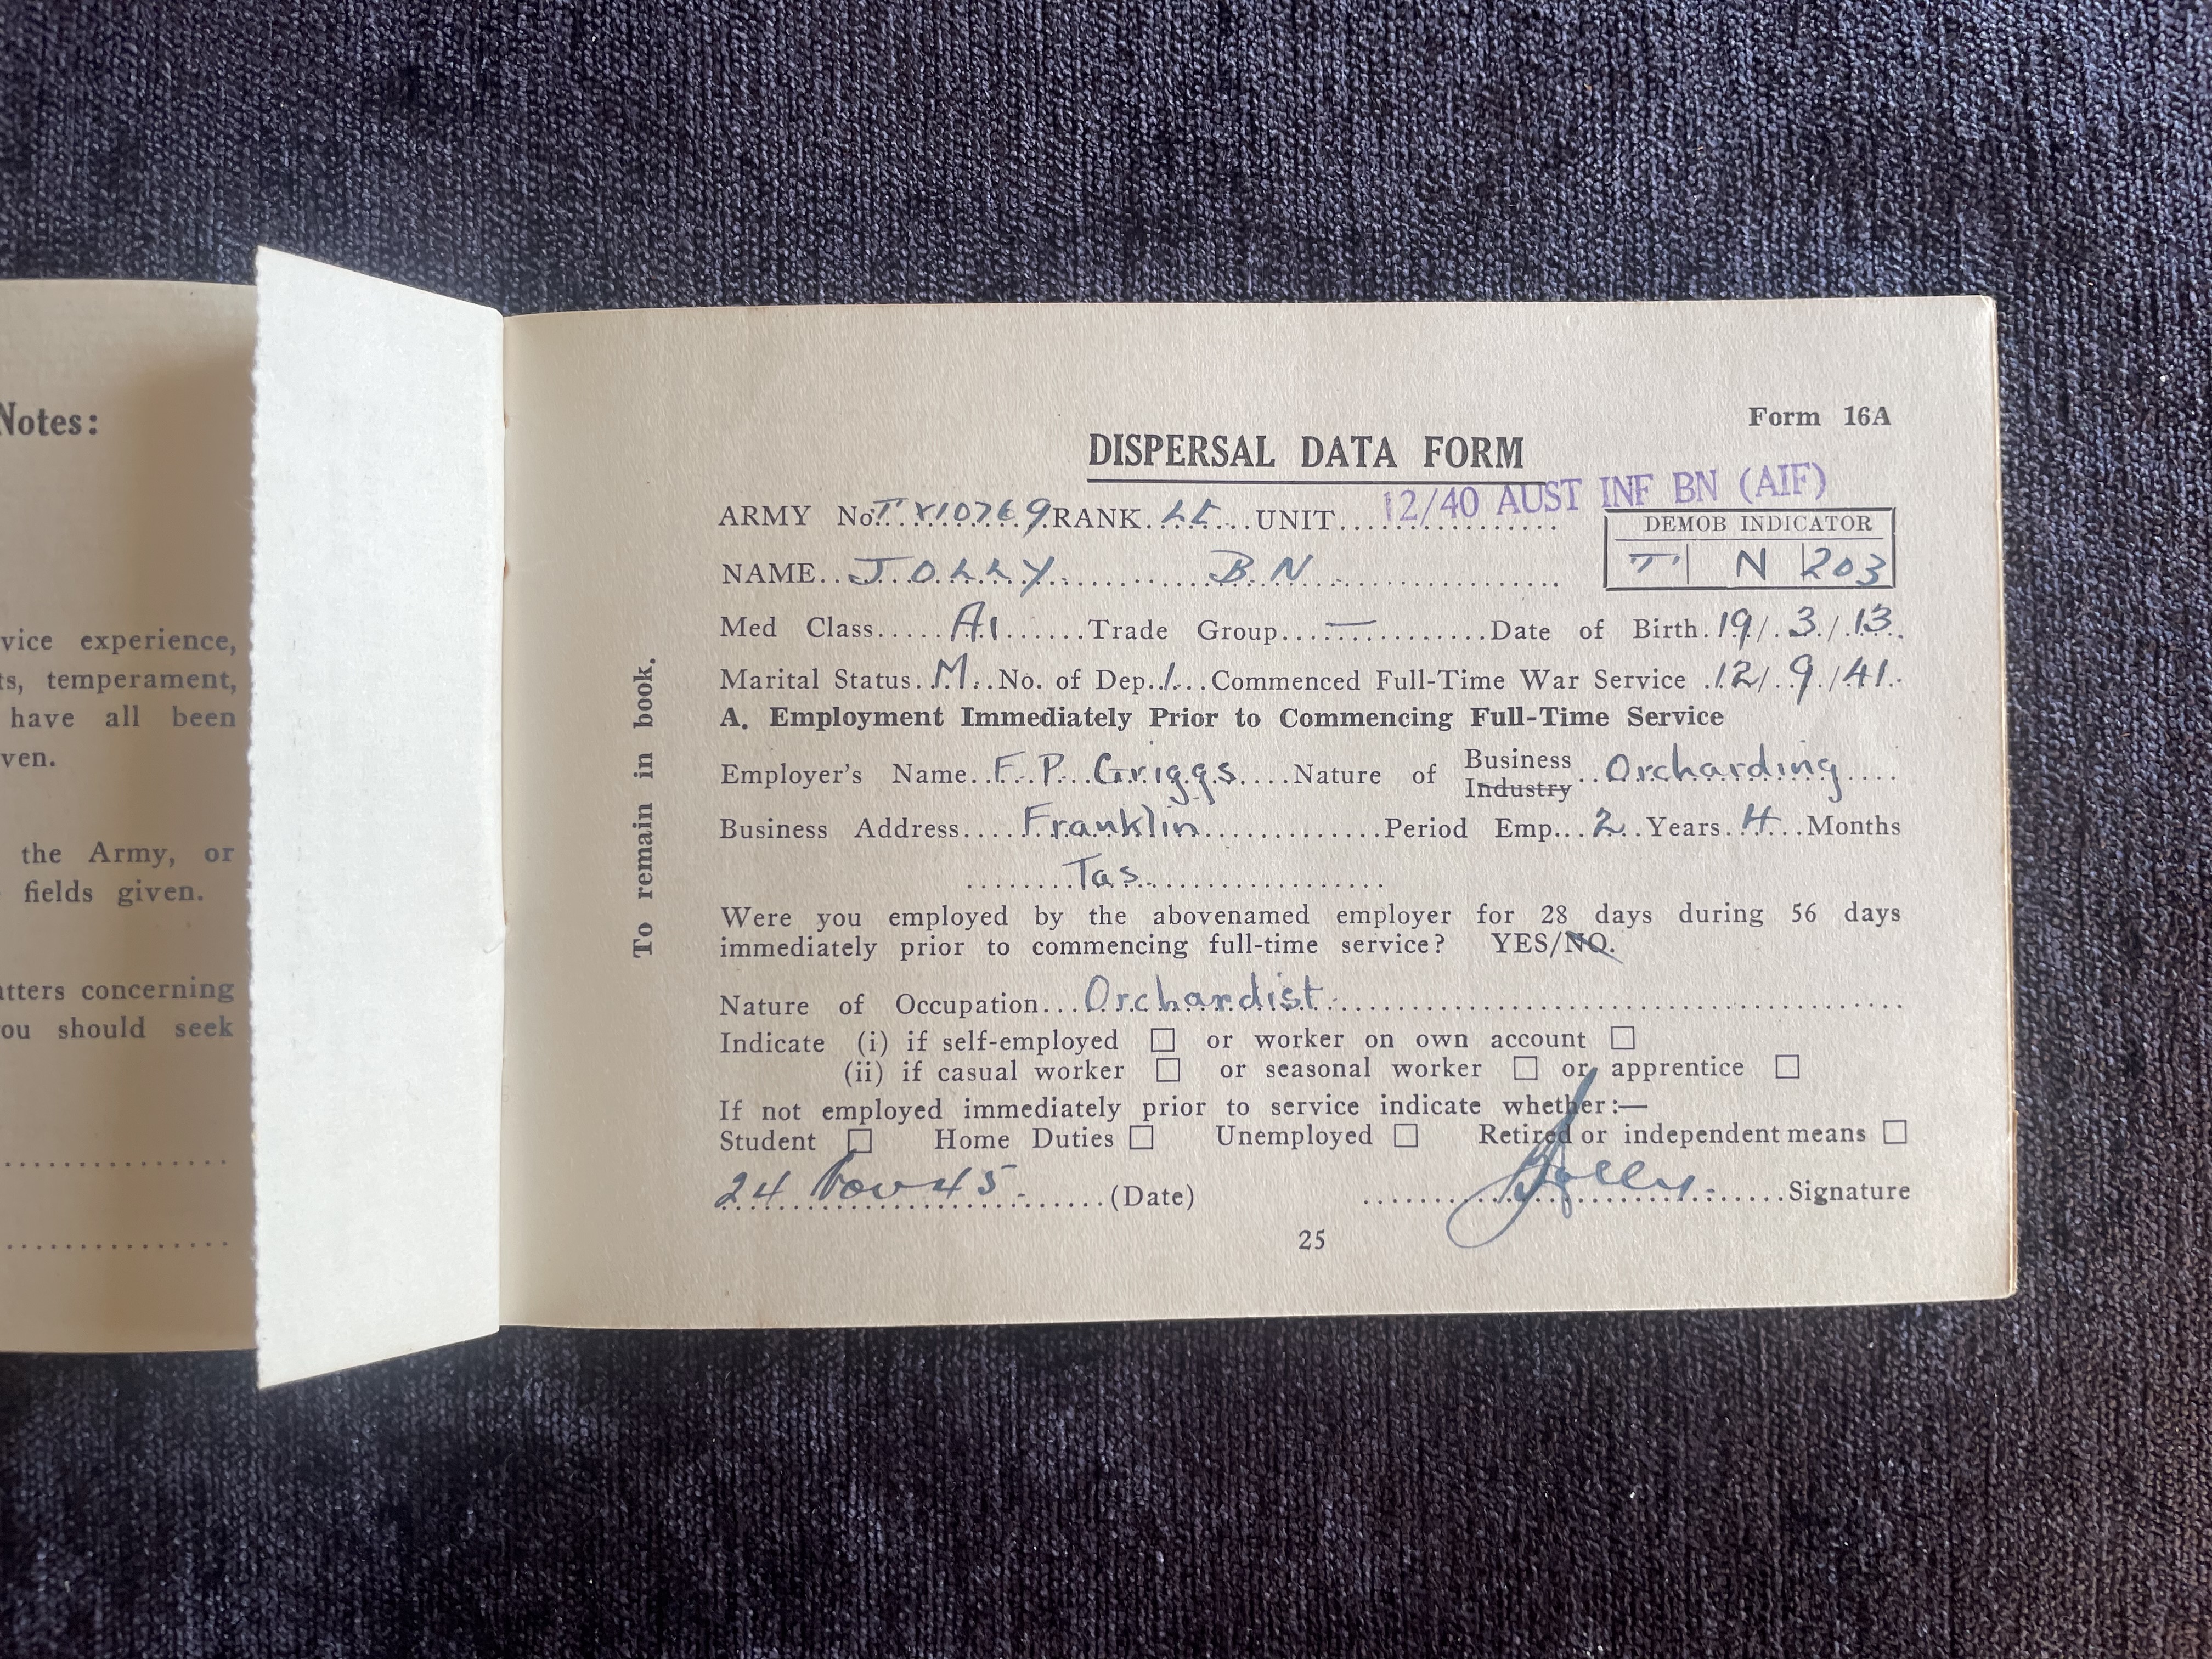 Notes:
vice experience,
ts, temperament,
have all been
ven.
the Army, or
fields given.
tters concerning
ou should seek
To remain in book.
Form 16A
DISPERSAL DATA FORM
12/40 AUST INF BN (AIF)
ARMY No. TX10769 RANK Lt UNIT
DEMOB INDICATOR
T N 203
NAME JOLLY B N
Med Class A1 Trade Group — Date of Birth 19/3/13
Marital Status M. No. of Dep. 1 Commenced Full-Time War Service 12/9/41
A. Employment Immediately Prior to Commencing Full-Time Service
Employer's Name F.P. Griggs Nature of Business Industry Orcharding
Business Address Franklin Period Emp. 2 Years 4 Months
Tas.
Were you employed by the abovenamed employer for 28 days during 56 days
immediately prior to commencing full-time service? YES/NO.
Nature of Occupation Orchardist
Indicate (i) if self-employed ☐ or worker on own account ☐
(ii) if casual worker ☐ or seasonal worker ☐ or apprentice ☐
If not employed immediately prior to service indicate whether:—
Student ☐ Home Duties ☐ Unemployed ☐ Retired or independent means ☐
24 Nov 45 (Date) BJolly Signature
25